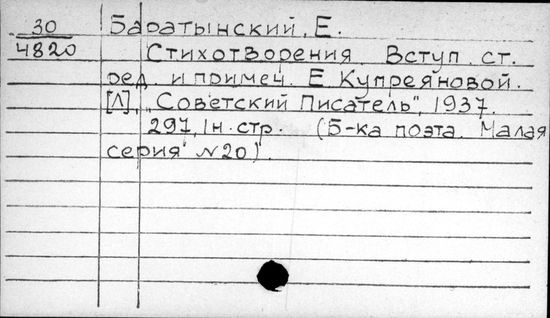 30
4820
Баратынский, Е.
Стихотворения. Вступ. ст.
ред. и примеч. Е. Купреяновой.
[Л], "Советский Писатель", 1937.
297, 1н. стр. (Б-ка поэта. Малая
серия №20).